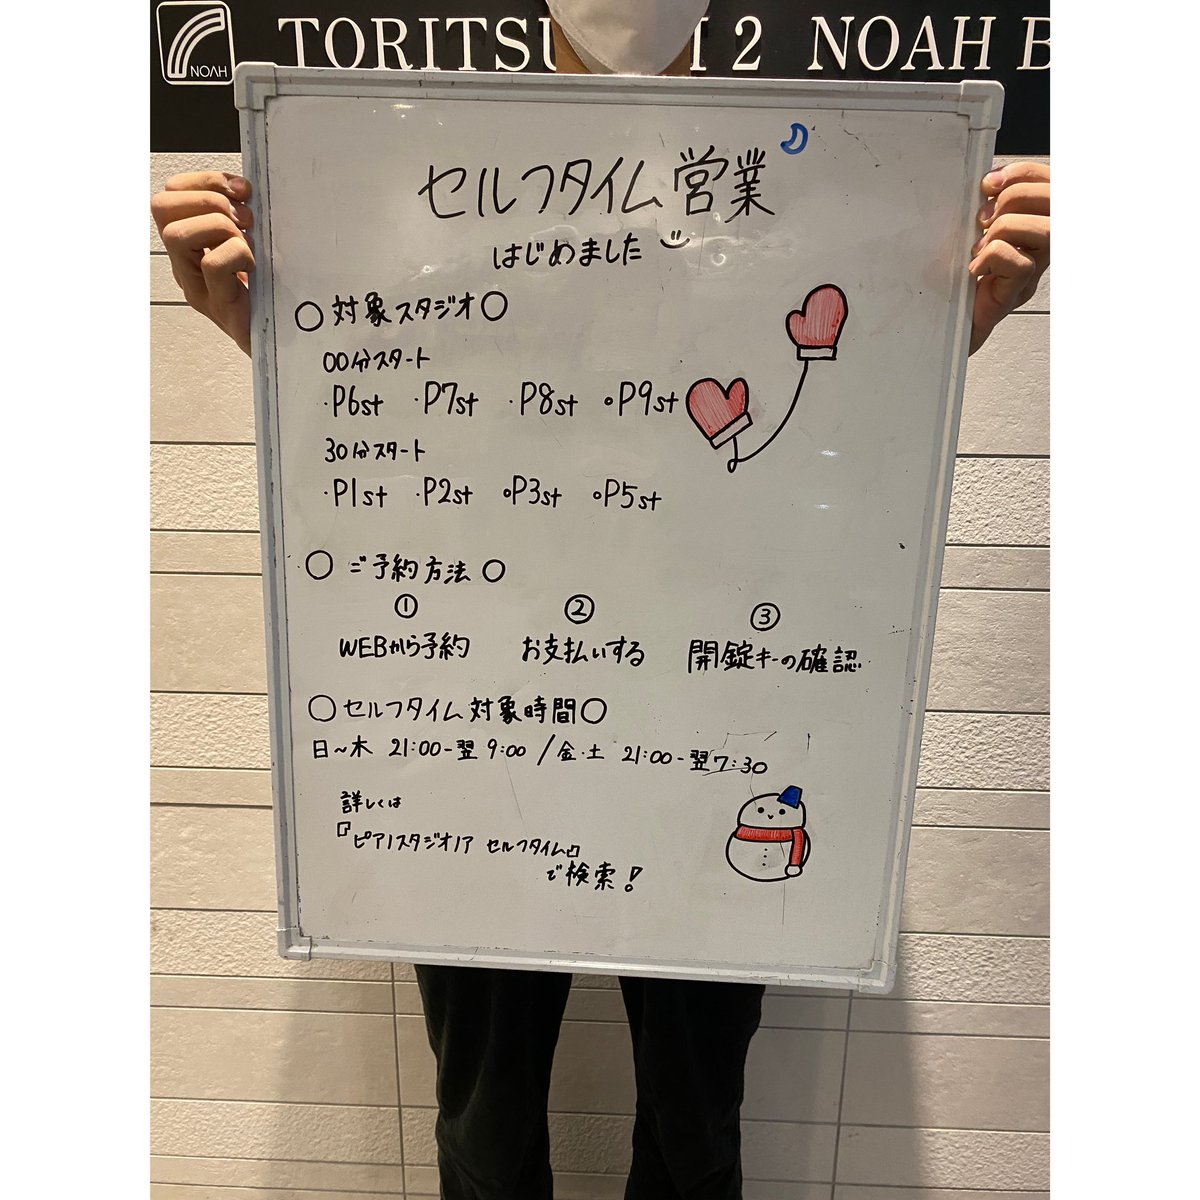 NOAH TORITSU 2 NOAH B
セルフタイム営業
はじめました
○対象スタジオ○
00分スタート
・P6st ・P7st ・P8st ・P9st
30分スタート
・P1st ・P2st ・P3st ・P5st
○ご予約方法○
① ② ③
WEBから予約 お支払いする 開錠キーの確認
○セルフタイム対象時間○
日~木 21:00-翌9:00/金・土 21:00-翌7:30
詳しくは
『ピアノスタジオノア セルフタイム』
で検索!